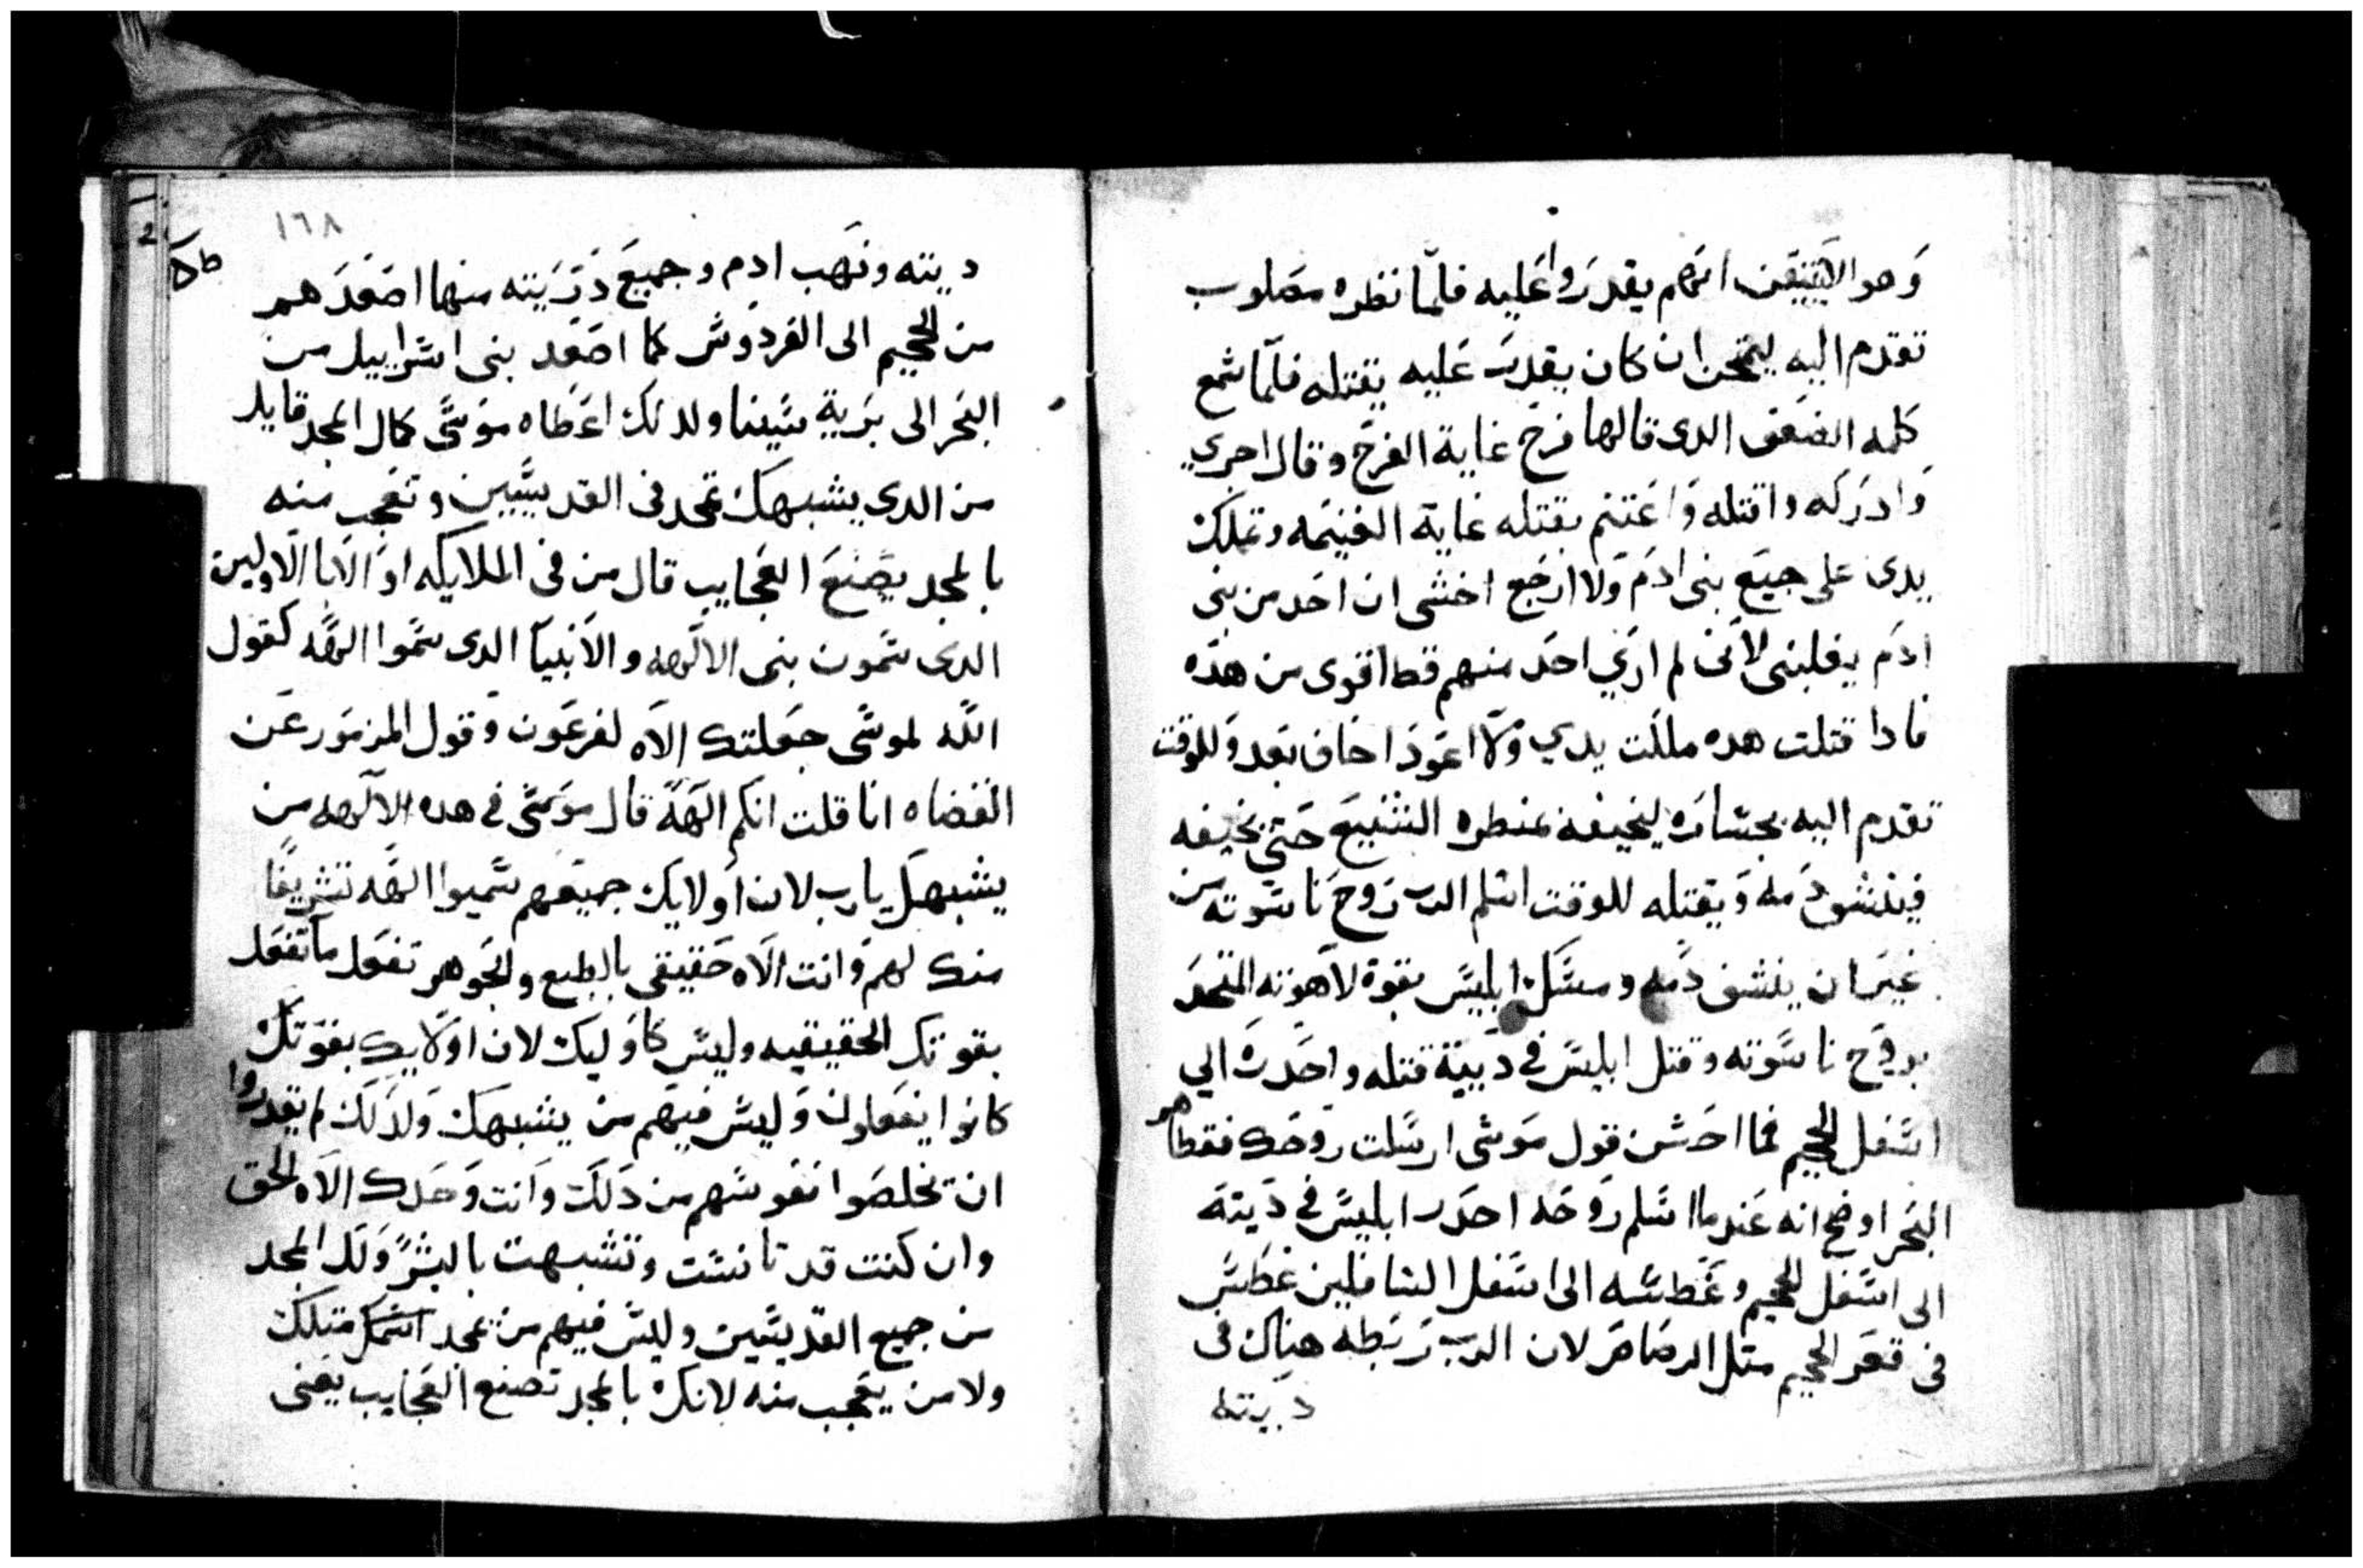 وهو الاييقن انهم يقدروا عليه فلما نظره مصلوب
تقدم اليه ليمتحن ان كان يقدر عليه يقتله فلما سمع
كلمه الضعف الدى قالها فرح غاية الفرح وقال اجري
وادركه واقتله واغتنم بقتله غاية الغنيمه وتملك
يدى على جميع بنى ادم ولا ارجع اخشى ان احد من بنى
ادم يغلبنى لانى لم ارى احد منهم قط اقوى من هده
فادا قتلت هده ملكت يدي ولا اعود اخاف بعد وللوقت
تقدم اليه بجساره ليخيفه بمنطره الشنيع حتى يخيفه
فينشق دمه ويقتله للوقت اسلم الرب روح ناسوته من
غير ان ينشف دمه ومسك ابليس بقوة لاهوته المتحد
بروح ناسوته وقتل ابليس فى دبيتة قتله واحدره الي
اسفل الجحيم فما احسن قول موسى ارسلت روحك فقطاهم
البحر اوضح انه عندما اسلم روحه احدر ابليس فى ديته
الى اسفل الجحيم وغطسه الى اسفل السافلين غطس
فى قعر الجحيم متل الرصاص لان الرب ربطه هناك فى
ديته
١٦٨
ديته ونهب ادم وجميع دريته منها اصعدهم
من الجحيم الى الفردوس كما اصعد بنى اسراييل من
البحر الى برية سينا ولدلك اعطاه موسى كمال المجد قايلا
من الدى يشبهك تمجد فى القديسين وتعجب منه
بالمجد يصنع العجايب قال من فى الملايكه او الابا الاولين
الدى سمون بنى الالهه والانبيا الدى سموا الهه كقول
الله لموسى جعلتك الاه لفرعون وقول المزمور عن
القضاه انا قلت انكم الهة قال موسى في هده الالهه من
يشبهك يا رب لان اولايك جميعهم سميوا الهه تشريفا
منك لهم وانت الاه حقيقى بالطبع والجوهر تفعل ما تفعل
بقوتك الحقيقيه وليس كاوليك لان اولايك بقوتك
كانوا يفعلون وليس فيهم من يشبهك ولدلك لم يقدروا
ان يخلصوا نفوسهم من دلك وانت وحدك الاه الحق
وان كنت قد تانست وتشبهت بالبشر ولك المجد
من جميع القديسين وليس فيهم من يمجد اسمك متلك
ولا من يعجب منه لانك بالمجد تصنع العجايب يعنى